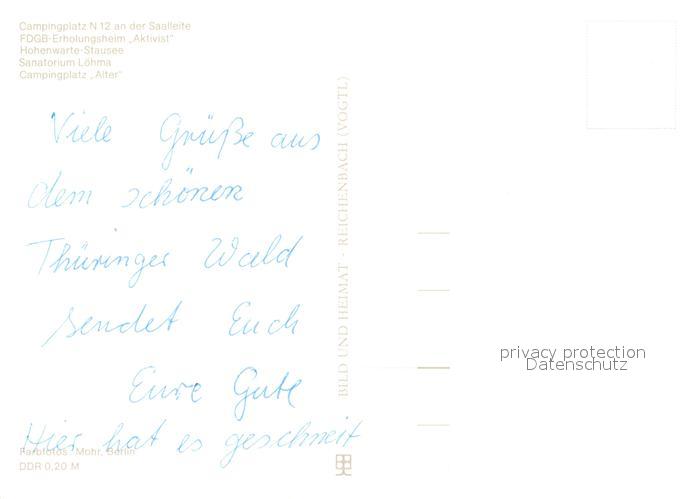 Campingplatz N 12 an der Saalleite
FDGB-Erholungsheim „Aktivist"
Hohenwarte-Stausee
Sanatorium Löhma
Campingplatz „Alter"
Viele Grüße aus
dem schönen
Thüringer Wald
sendet Euch
Eure Gute
Hier hat es geschneit
Farbfotos: Mohr, Berlin
DDR 0,20 M
BILD UND HEIMAT · REICHENBACH (VOGTL)
privacy protection
Datenschutz